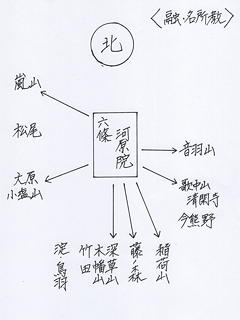 〈融・名所教〉
北
嵐山
松尾
大原
小塩山
六條
河原院
音羽山
歌中山
清閑寺
今熊野
稲荷山
藤ノ森
深草山
木幡山
竹田
淀・鳥羽